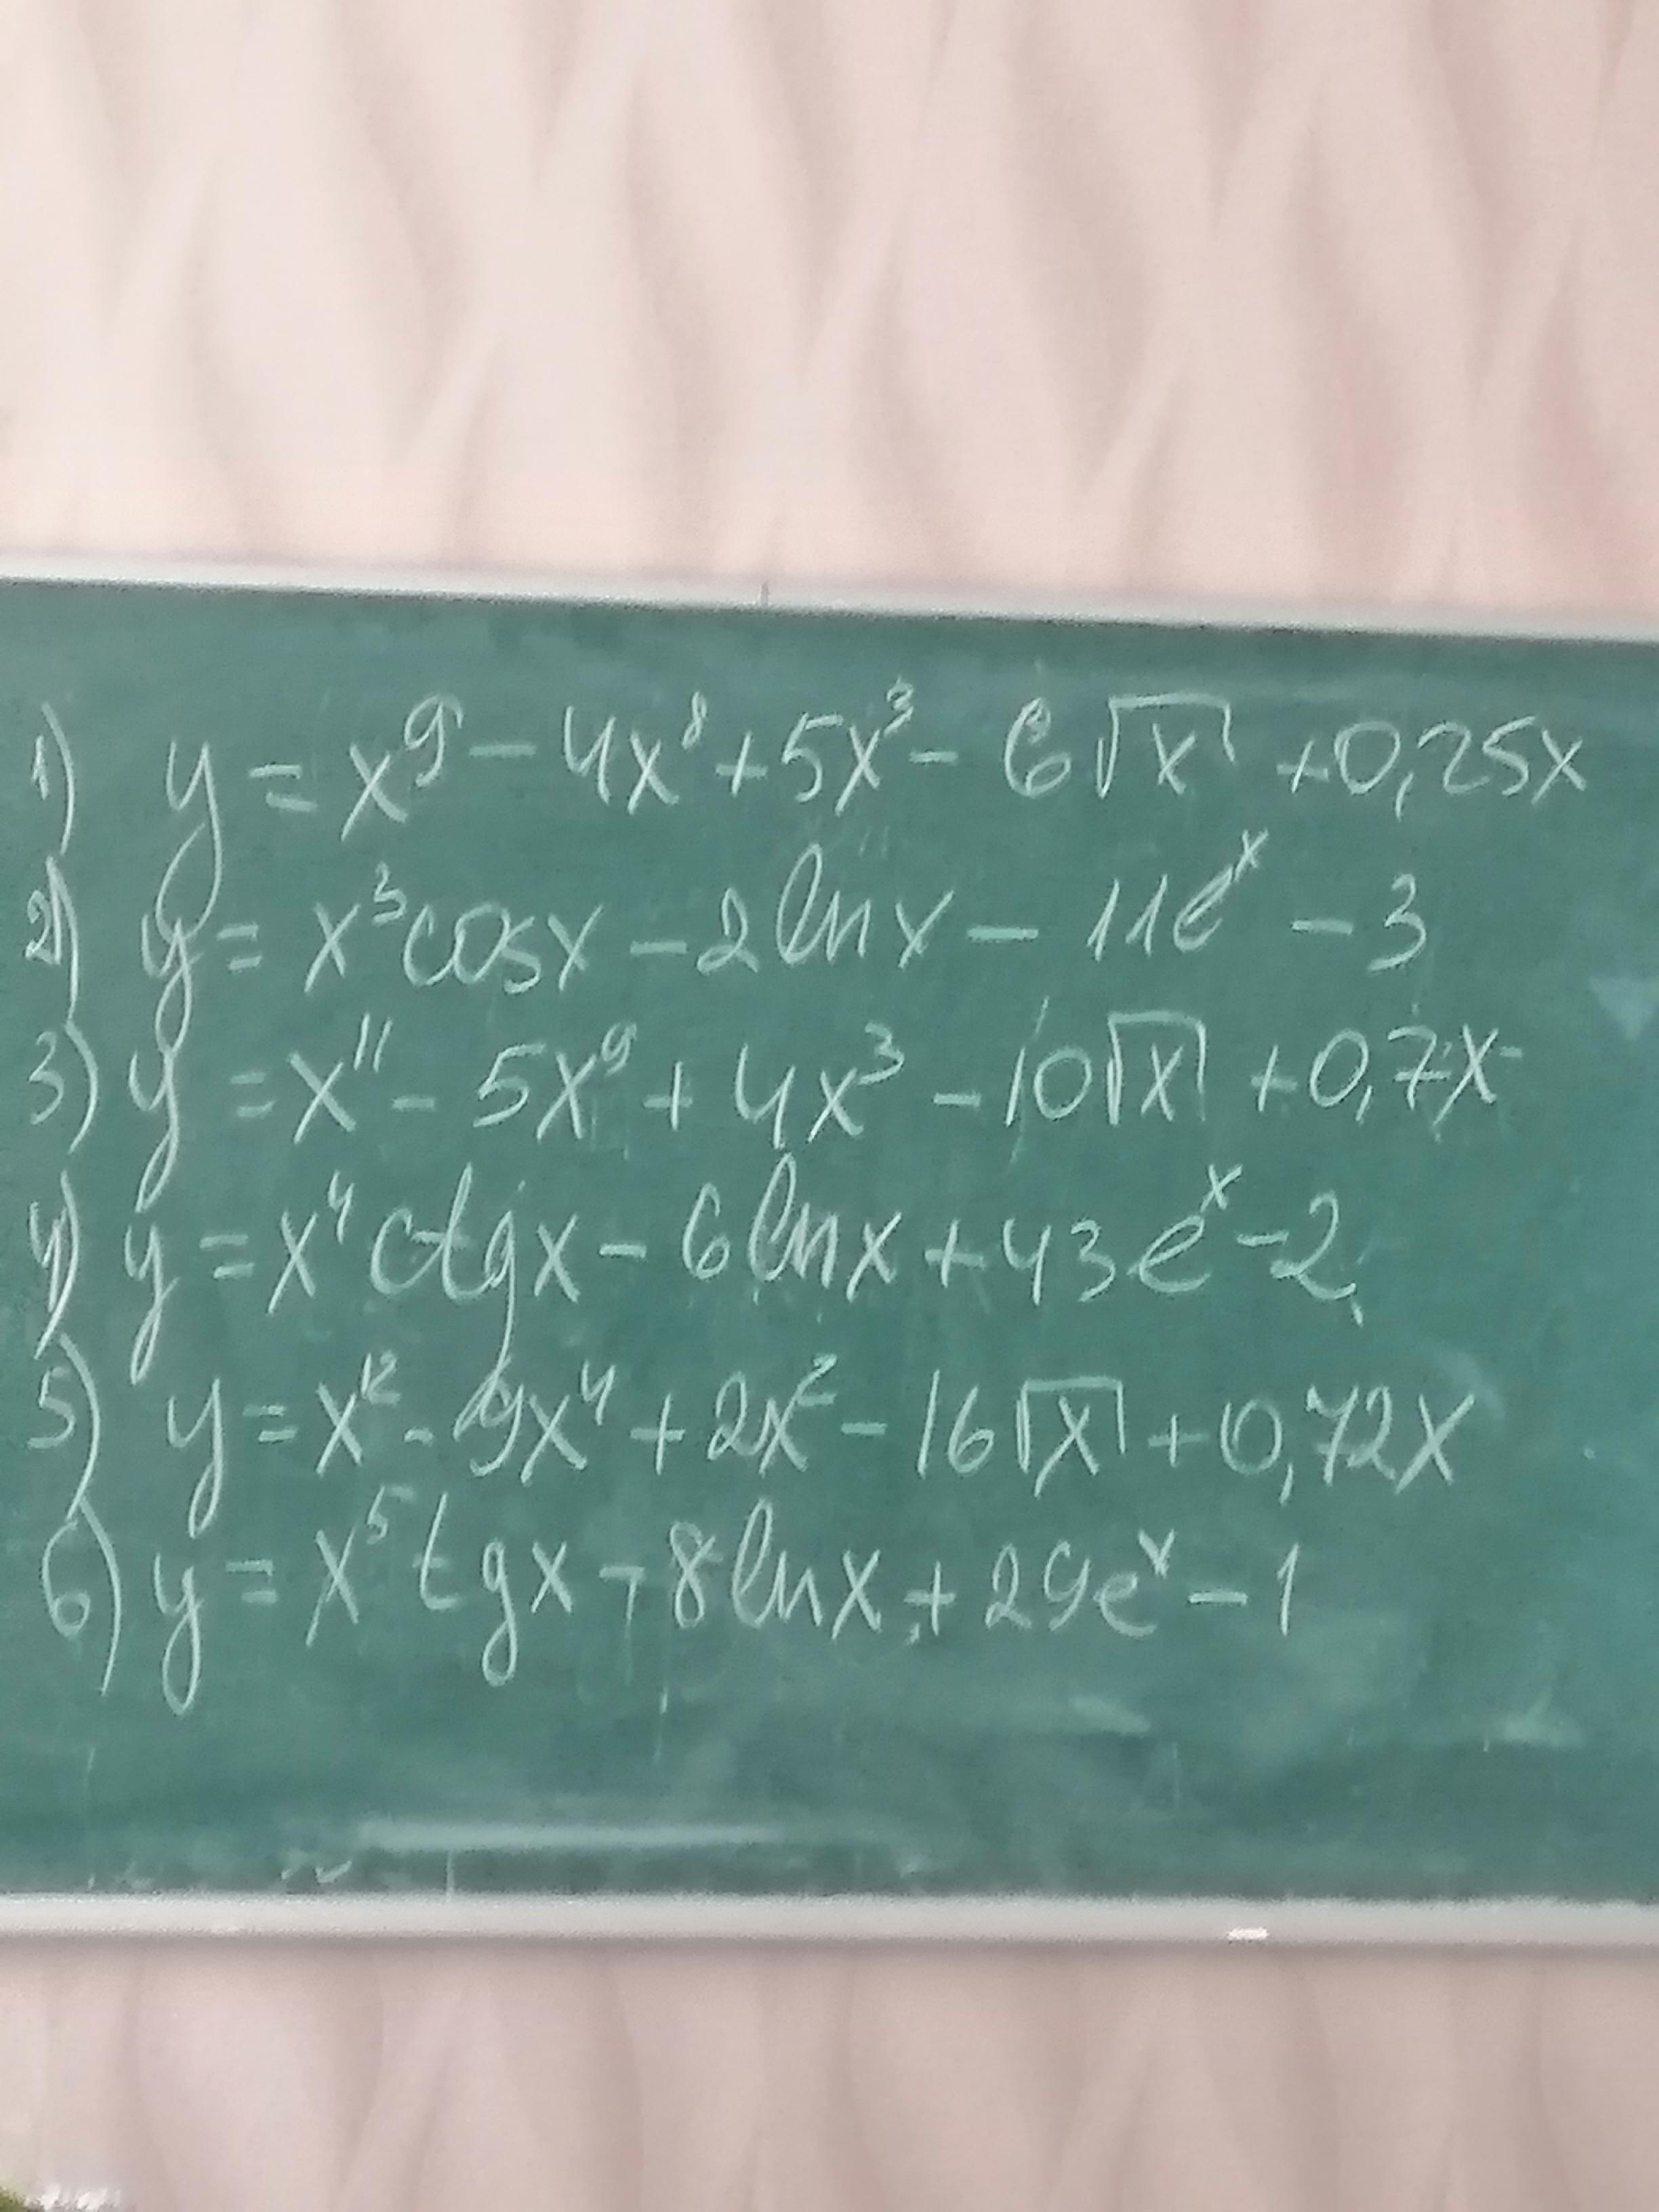 1) y = x⁹ - 4x⁸ + 5x³ - 6√x + 0,25x
2) y = x³cosx - 2lnx - 11eˣ - 3
3) y = x¹¹ - 5x⁹ + 4x³ - 10√x + 0,7x
4) y = x⁴ctgx - 6lnx + 43eˣ - 2
5) y = x¹² - 9x⁴ + 2x² - 16√x + 0,72x
6) y = x⁵tgx - 8lnx + 29eˣ - 1